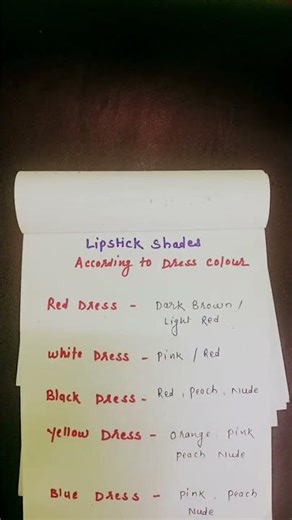 Lipstick Shades
According to Dress Colour
Red Dress - Dark Brown /
Light Red
White Dress - Pink / Red
Black Dress - Red, Peach, Nude
Yellow Dress - Orange, Pink
Peach Nude
Blue Dress - Pink, Peach
Nude